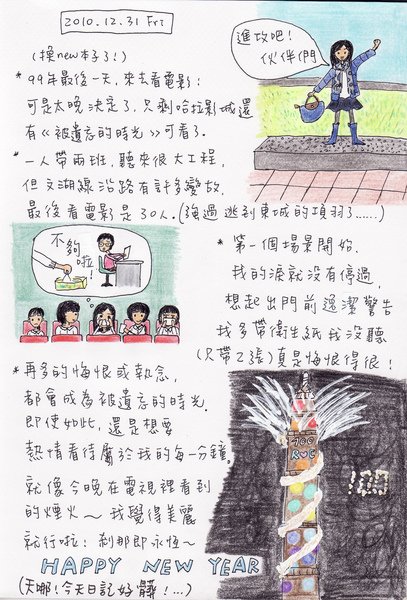 2010.12.31 Fri
(換new本子了!)
進攻吧!
伙伴們
* 99年最後一天,來去看電影!
可是太晚決定了,只剩哈拉影城還
有《被遺忘的時光》可看了.
* 一人帶兩班,聽來很大工程,
但文湖線沿路有許多變故,
最後看電影是30人.(強過逃到東城的項羽了……)
不夠
啦!
* 第一個場景開始,
我的淚就沒有停過,
想起出門前逸潔警告
我多帶衛生紙我沒聽
(只帶2張)真是悔恨得很!
* 再多的悔恨或執念,
都會成為被遺忘的時光.
即使如此,還是想要
熱情看待屬於我的每一分鐘,
就像今晚在電視裡看到
的煙火~我覺得美麗
就行啦!剎那即永恆~
100
ROC
100
HAPPY NEW YEAR
(天哪!今天日記好髒!…)